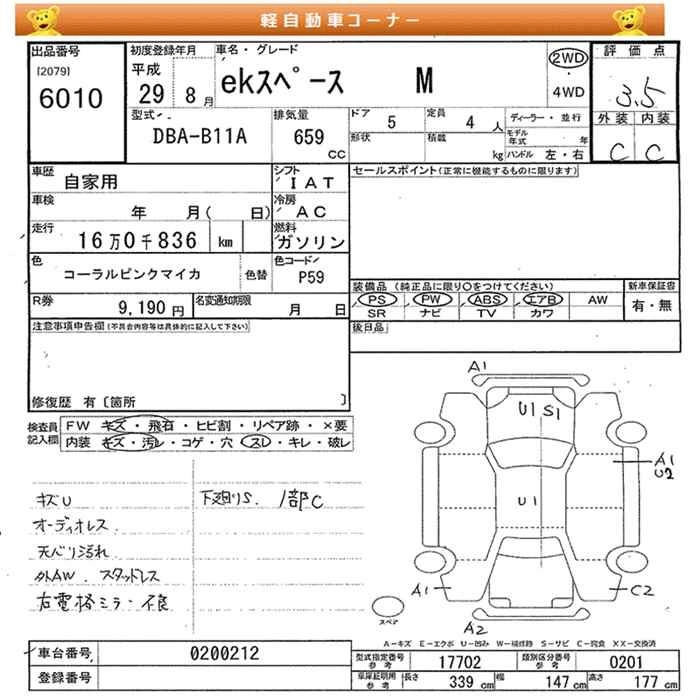 軽自動車コーナー
出品番号
[2079]
6010
初度登録年月
平成
29 8月
車名・グレード
ekスペース M
2WD
・
4WD
評価点
3.5
外装 内装
C C
型式
DBA-B11A
排気量
659
CC
ドア
5
定員
4人
ディーラー・並行
形状
積載
kg
モデル年式 年
ハンドル 左・右
車歴
自家用
シフト
IAT
セールスポイント(正常に機能するものに限ります)
車検
年 月( 日)
冷房
AC
走行
16万0千836 km
燃料
ガソリン
色
コーラルピンクマイカ
色替
色コード
P59
装備品 (純正品に限り○をつけてください)
新車保証書
PS PW ABS エアB AW
有・無
SR ナビ TV カワ
R券
9,190円
名変通知期限
月 日
後日品
注意事項申告欄(不具合内容等は具体的に記入して下さい)
修復歴 有〔箇所 〕
検査員
記入欄
FW キズ・飛石・ヒビ割・リペア跡・×要
内装 キズ・汚レ・コゲ・穴・スレ・キレ・破レ
キズU
下廻りS. 1部C
オーディオレス.
天バリ汚れ
外AW. スタッドレス
右電格ミラー不良
A1
U1 S1
A1
U2
U1
A1
C2
A2
スペア
A-キズ E-エクボ U-凹み W-補修跡 S-サビ C-腐食 XX-交換済
車台番号
0200212
登録番号
型式指定番号
参考
17702
類別区分番号
参考
0201
車庫証明用
参考
長さ 339 cm 幅 147 cm 高さ 177 cm